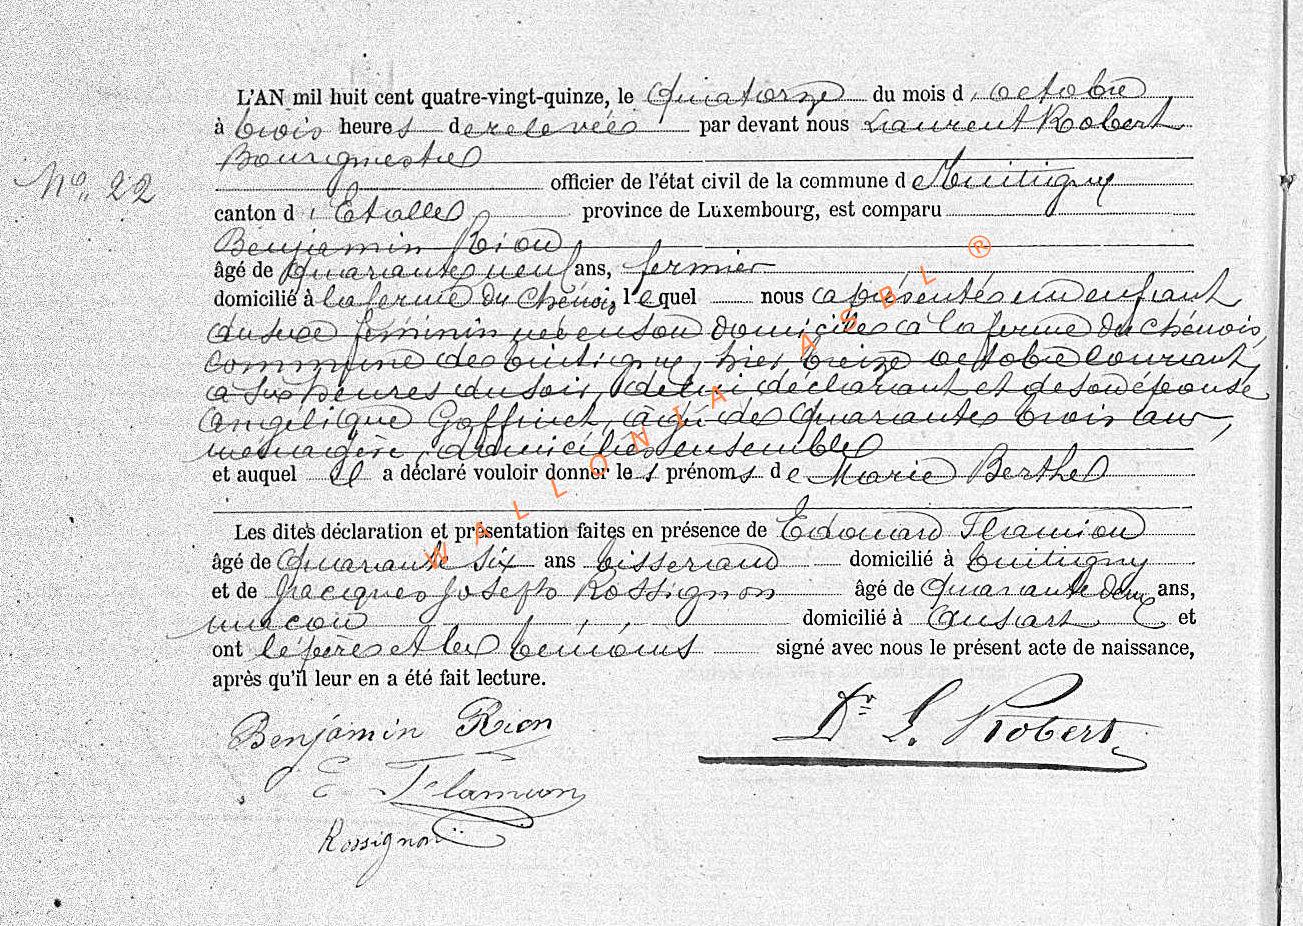 L'AN mil huit cent quatre-vingt-quinze, le quatorze du mois d'octobre
à trois heures de relevée par devant nous Laurent Robert
Bourgmestre
No. 22
officier de l'état civil de la commune de Tintigny
canton d'Etalle province de Luxembourg, est comparu
Benjamin Rion
âgé de quarante neuf ans, fermier
domicilié à la ferme du Chénois, lequel nous a présenté un enfant
du sexe féminin né en son domicile à la ferme du Chénois,
commune de Tintigny, hier treize octobre courant,
à six heures du soir, de lui déclarant et de son épouse
Angélique Goffinet, âgée de quarante trois ans,
ménagère, domiciliés ensemble
et auquel il a déclaré vouloir donner les prénoms de Marie Berthe
Les dites déclaration et présentation faites en présence de Edouard Flamion
âgé de quarante six ans tisserand domicilié à Tintigny
et de Jacques Joseph Rossignon âgé de quarante deux ans,
maçon domicilié à Ansart et
ont le père et les témoins signé avec nous le présent acte de naissance,
après qu'il leur en a été fait lecture.
Benjamin Rion
Dr L. Robert
E Flamion
Rossignon
WALLONIA ASBL ®